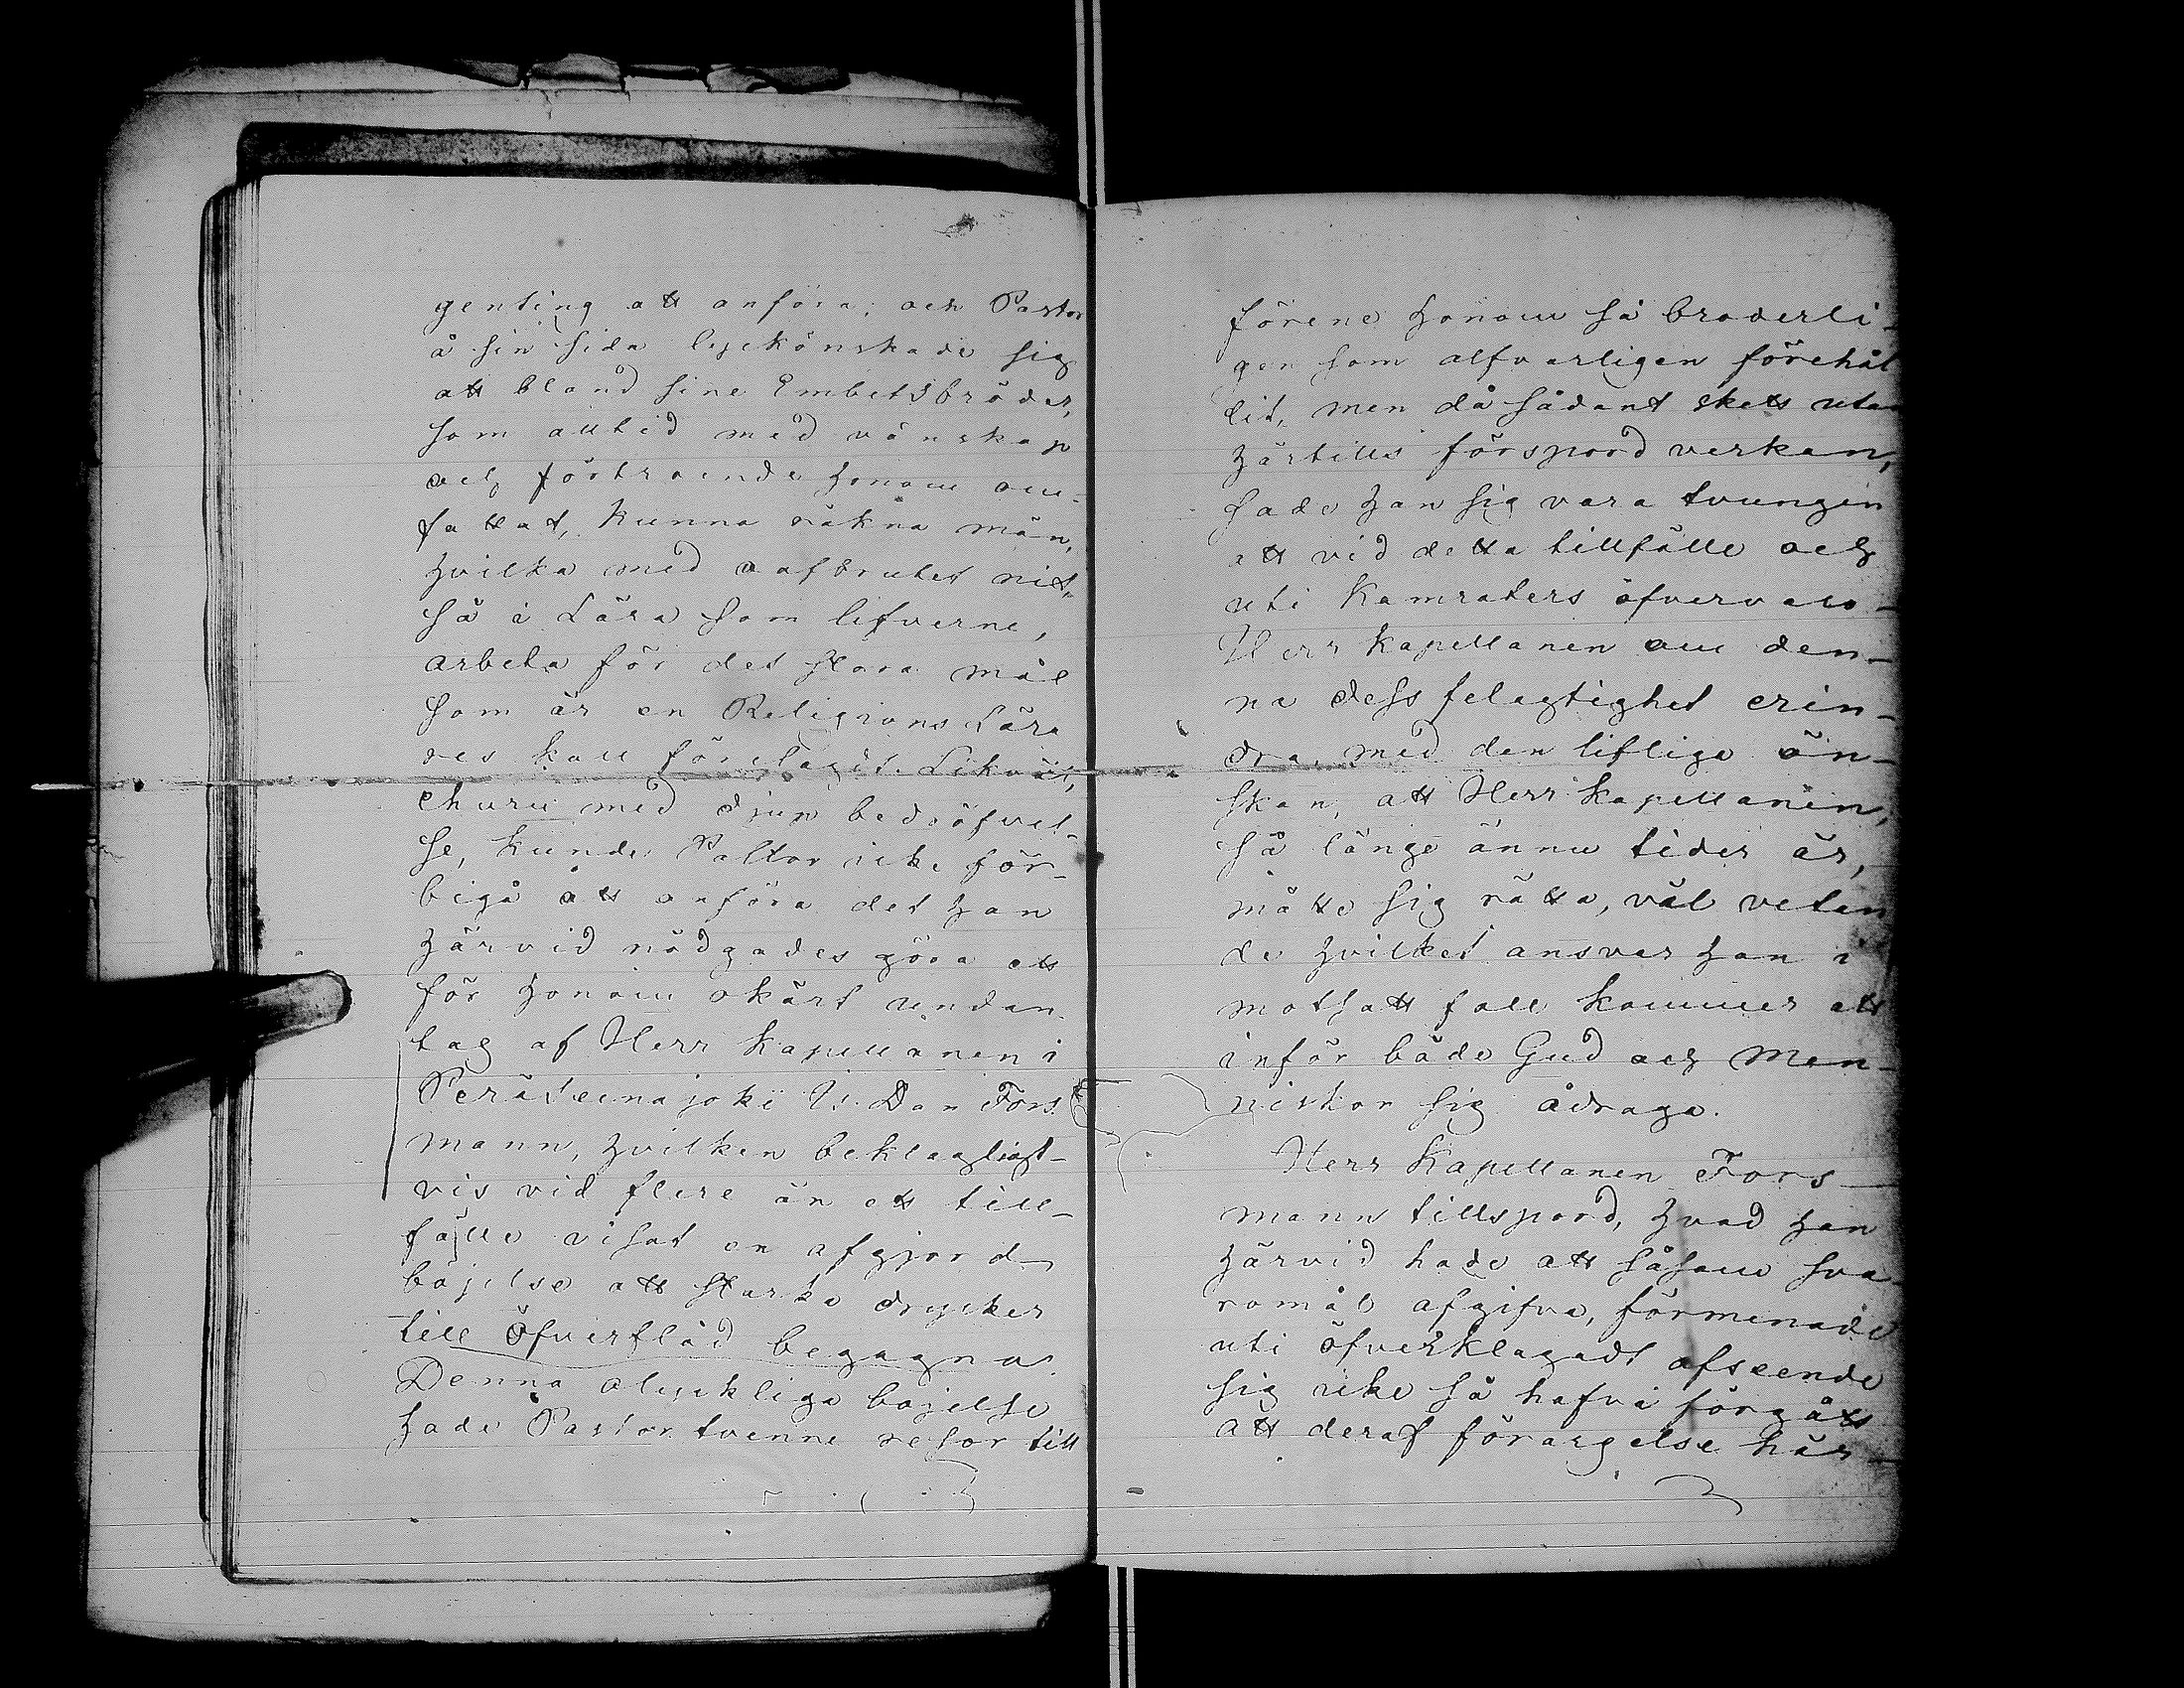 genting att anföra; och Pastor
å sin sida lyckönskade sig
att bland sine Embetsbröder,
som alltid med vänskap
och förtroende honom om-
fattat, kunna räkna män,
hvilka med oafbrutet nit,
så i Lära som lefverne,
arbeta för det stora mål
som är en Religions Lära
res kall förelagdt. Likväl,
ehuru med djup bedröfvel-
se, kunde Pastor icke för-
bigå att anföra det han
härvid nödgades göra ett
för honom okärt undan
tag af Herr Kapellanen i
Peräseinajoki Dan Fors
mann, hvilken beklagligt-
vis vid flere än ett till-
fälle visat en afgjord
böjelse att starka drycker
till öfverflöd begagna.
Denna olyckliga böjelse
hade Pastor tvenne resor till
förene honom så broderli-
gen som alfvarligen förehål
lit, men då sådant skett utan
härtills förspord verkan,
sade han sig vara tvungen
att vid detta tillfälle och
uti Kamraters öfvervaro
Herr Kapellanen om den-
na dess felagtighet erin-
dra, med den lifliga ön-
skan, att Herr Kapellanen,
så länge ännu tider är,
måtte sig rätta, väl vetan
de hvilket ansvar han i
motsatt fall kommer att
inför både Gud och Men-
niskor sig ådraga.
Herr Kapellanen Fors-
mann tillspord, hvad han
härvid hade att såsom sva
romål afgifva, förmenade
uti öfverklagadt afseende
sig icke så hafva förgått
att deraf förargelse här-